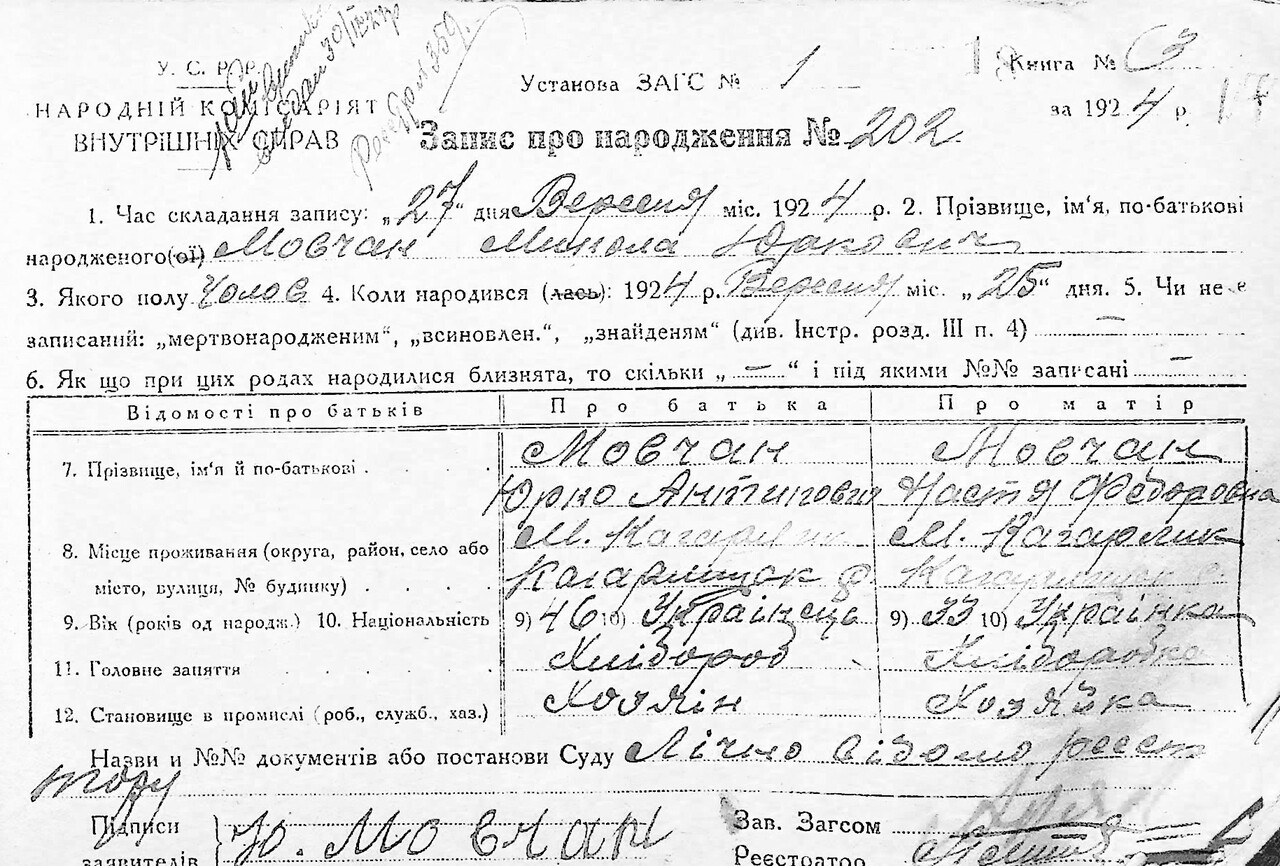 У. С. Р. Р.
НАРОДНІЙ КОМІСАРІЯТ
ВНУТРІШНІХ СПРАВ
Установа ЗАГС № 1
Книга № 3
за 1924 р. 17
Запис про народження № 202
1. Час складання запису: „27“ дня Вересня міс. 1924 р. 2. Прізвище, ім‘я, по-батькові
народженого(ої) Мовчан Микола Юркович
3. Якого полу Чолов 4. Коли народився (лась): 1924 р. Вересня міс. „25“ дня. 5. Чи не є
записаний: „мертвонародженим“, „всиновлен.“, „знайденям“ (див. Інстр. розд. III п. 4) —
6. Як що при цих родах народилися близнята, то скільки „ — “ і під якими №№ записані —
Відомості про батьків Про батька Про матір
7. Прізвище, ім‘я й по-батькові Мовчан Мовчан
Юрко Антипович Настя Федоровна
8. Місце проживання (округа, район, село або М. Кагарлик М. Кагарлик
місто, вулиця, № будинку)
9. Вік (років од народж.) 10. Національність 9) 46 10) Українець 9) 33 10) Українка
11. Головне заняття Хлібороб Хліборобка
12. Становище в промислі (роб., служб., хаз.) Хозяїн Хозяйка
Назви и №№ документів або постанови Суду Лічно відомо реєст
тору
Підписи Ю. Мовчан Зав. Загсом
заявителів Реєстратор